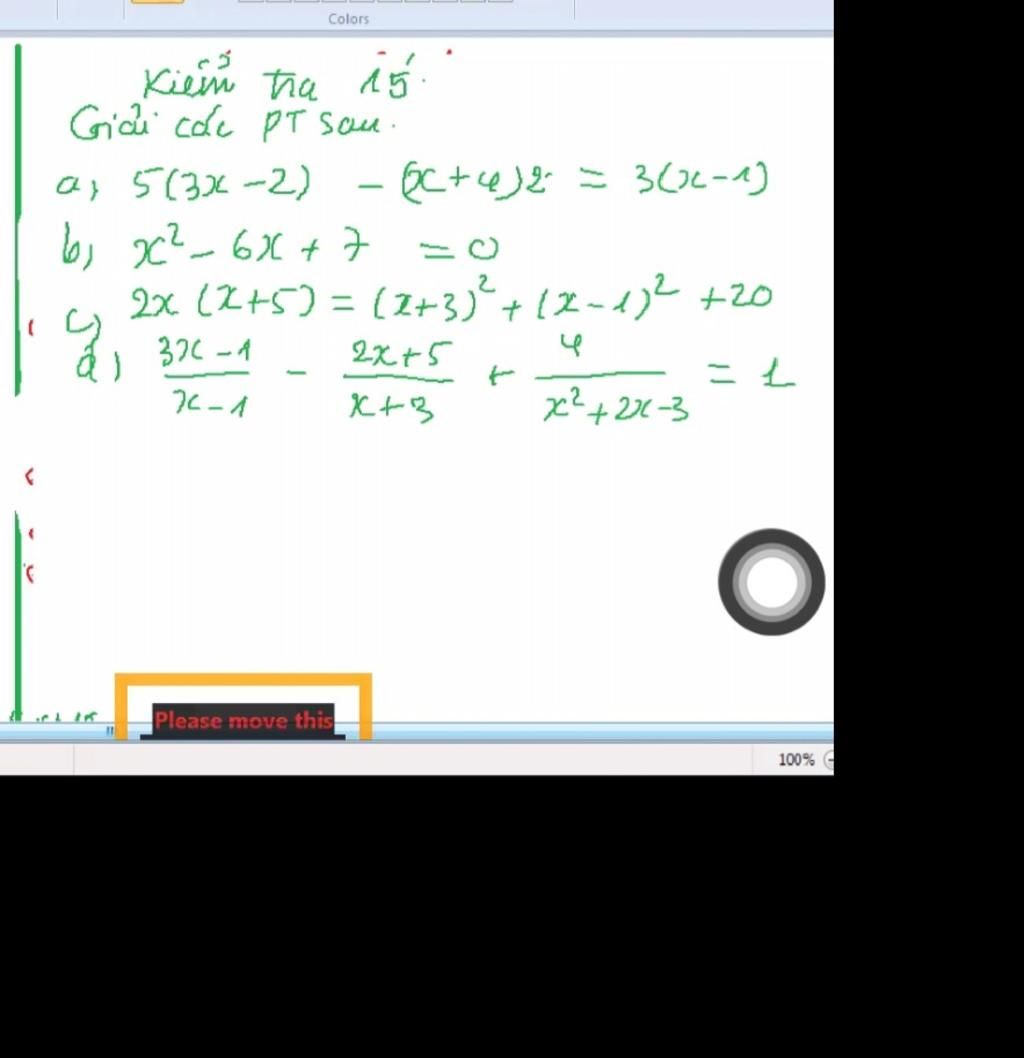 Colors
Kiểm tra 15'
Giải các PT sau.
a, 5(3x-2) - (x+4)2 = 3(x-1)
b, x² - 6x + 7 = 0
c, 2x(x+5) = (x+3)² + (x-1)² + 20
d) \frac{3x-1}{x-1} - \frac{2x+5}{x+3} + \frac{4}{x²+2x-3} = 1
Please move this
100%